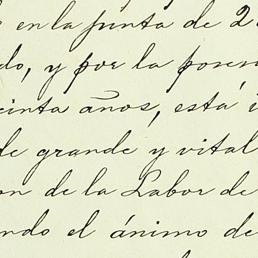 en la punta de 2
do, y por la presen
cinta años, está
de grande y vital
on de la Labor de
ndo el ánimo de